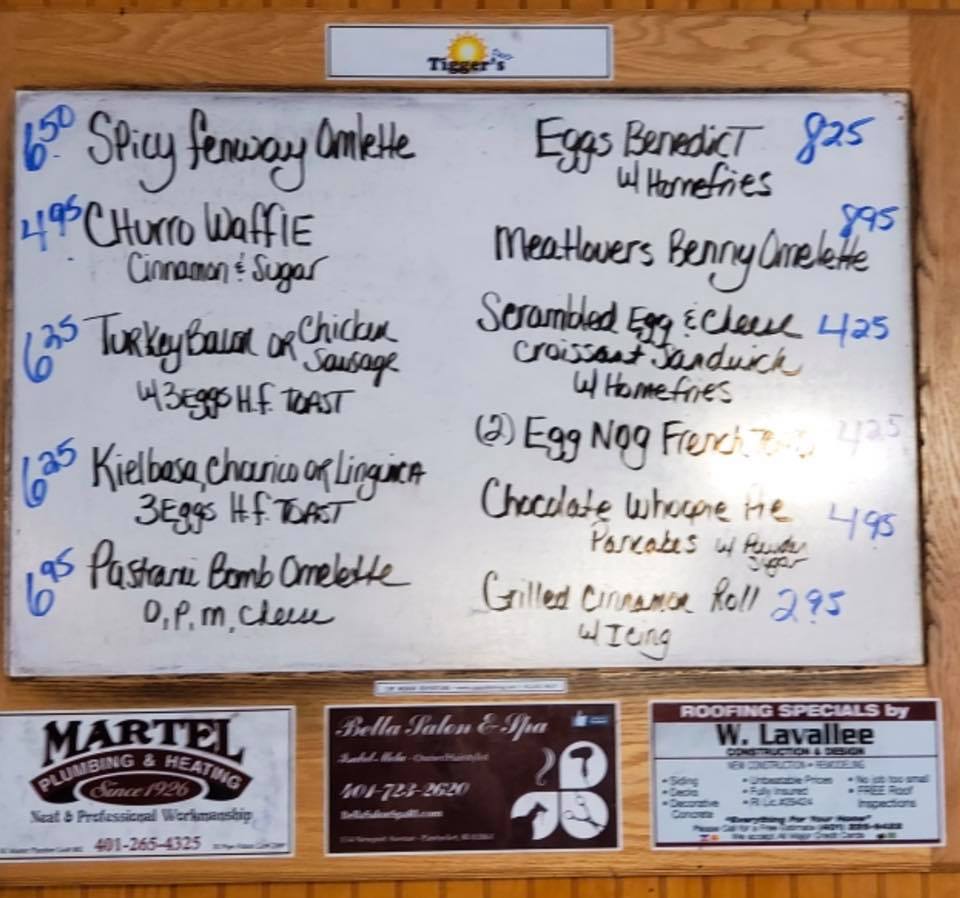 Tigger's
6.50 Spicy Fenway Omlette
4.95 CHurro WafflE
Cinnamon & Sugar
6.25 TurKey Bacon OR Chicken
Sausage
w/ 3 Eggs H.f. TOAST
6.25 Kielbasa, Chourico or LinguicA
3 Eggs H.f. TOAST
6.95 Pastrami Bomb Omelette
O, P, m, Cheese
Eggs BenedicT 8.25
w/ Homefries
8.95
Meatlovers Benny Omelette
Scrambled Egg & Cheese 4.25
Croissant Sandwich
w/ Homefries
(2) Egg Nog French 4.25
Chocolate Whoopie Pie 4.95
Pancakes w/ Powder
Sugar
Grilled Cinnamon Roll 2.95
w/ Icing
MARTEL
PLUMBING & HEATING
Since 1926
Neat & Professional Workmanship
401-265-4325
Bella Salon & Spa
401-723-2620
ROOFING SPECIALS by
W. Lavallee
CONSTRUCTION & DESIGN
NEW CONSTRUCTION • REMODELING
• Siding
• Decks
• Decorative
Concrete
• Unbeatable Prices
• Fully Insured
• RI Lic. #29424
• No job too small
• FREE Roof
Inspections
"Everything For Your Home"
Please Call for a Free Estimate
We accept All Major Credit Cards